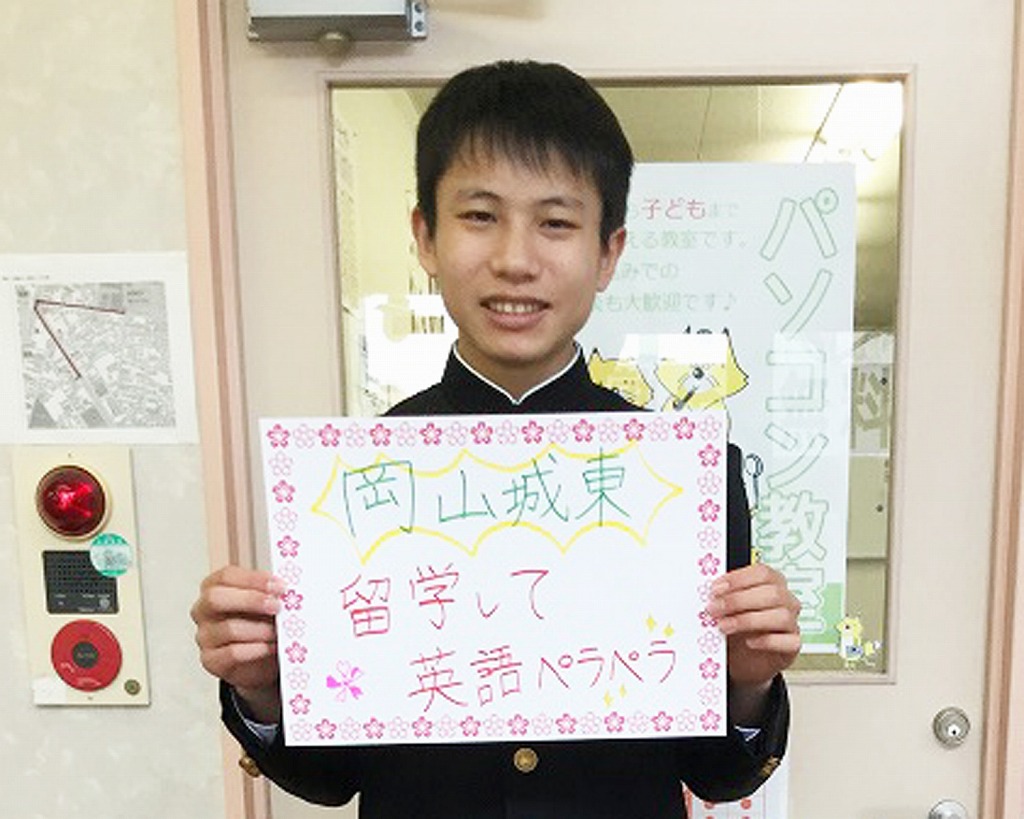 岡山城東
留学して
英語ペラペラ
子どもまで
える教室です。
みでの
も大歓迎です♪
パソコン教室